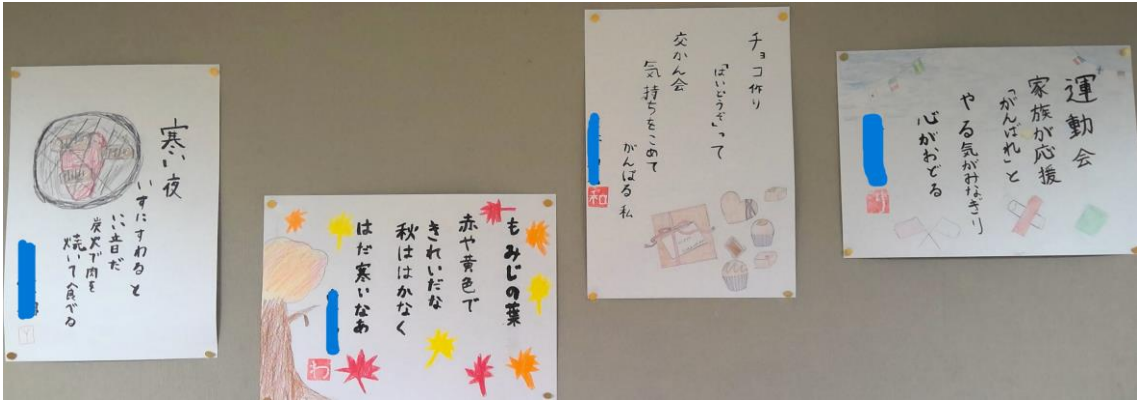 寒い夜
いすにすわると
いい音だ
炭火で肉を
焼いて食べる
もみじの葉
赤や黄色で
きれいだな
秋ははかなく
はだ寒いなあ
わ
チョコ作り
「はいどうぞ」って
交かん会
気持ちをこめて
がんばる私
和
運動会
家族が応援
「がんばれ」と
やる気がみなぎり
心がおどる